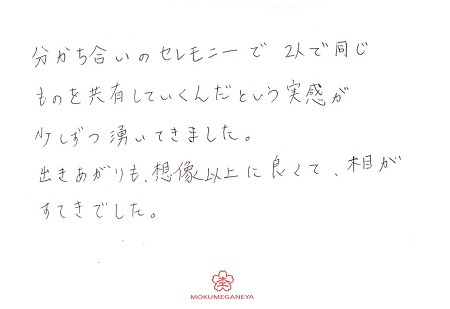 分かち合いのセレモニーで 2人で同じ
ものを共有していくんだという実感が
少しずつ湧いてきました。
出きあがりも、想像以上に良くて、木目が
すてきでした。
MOKUMEGANEYA